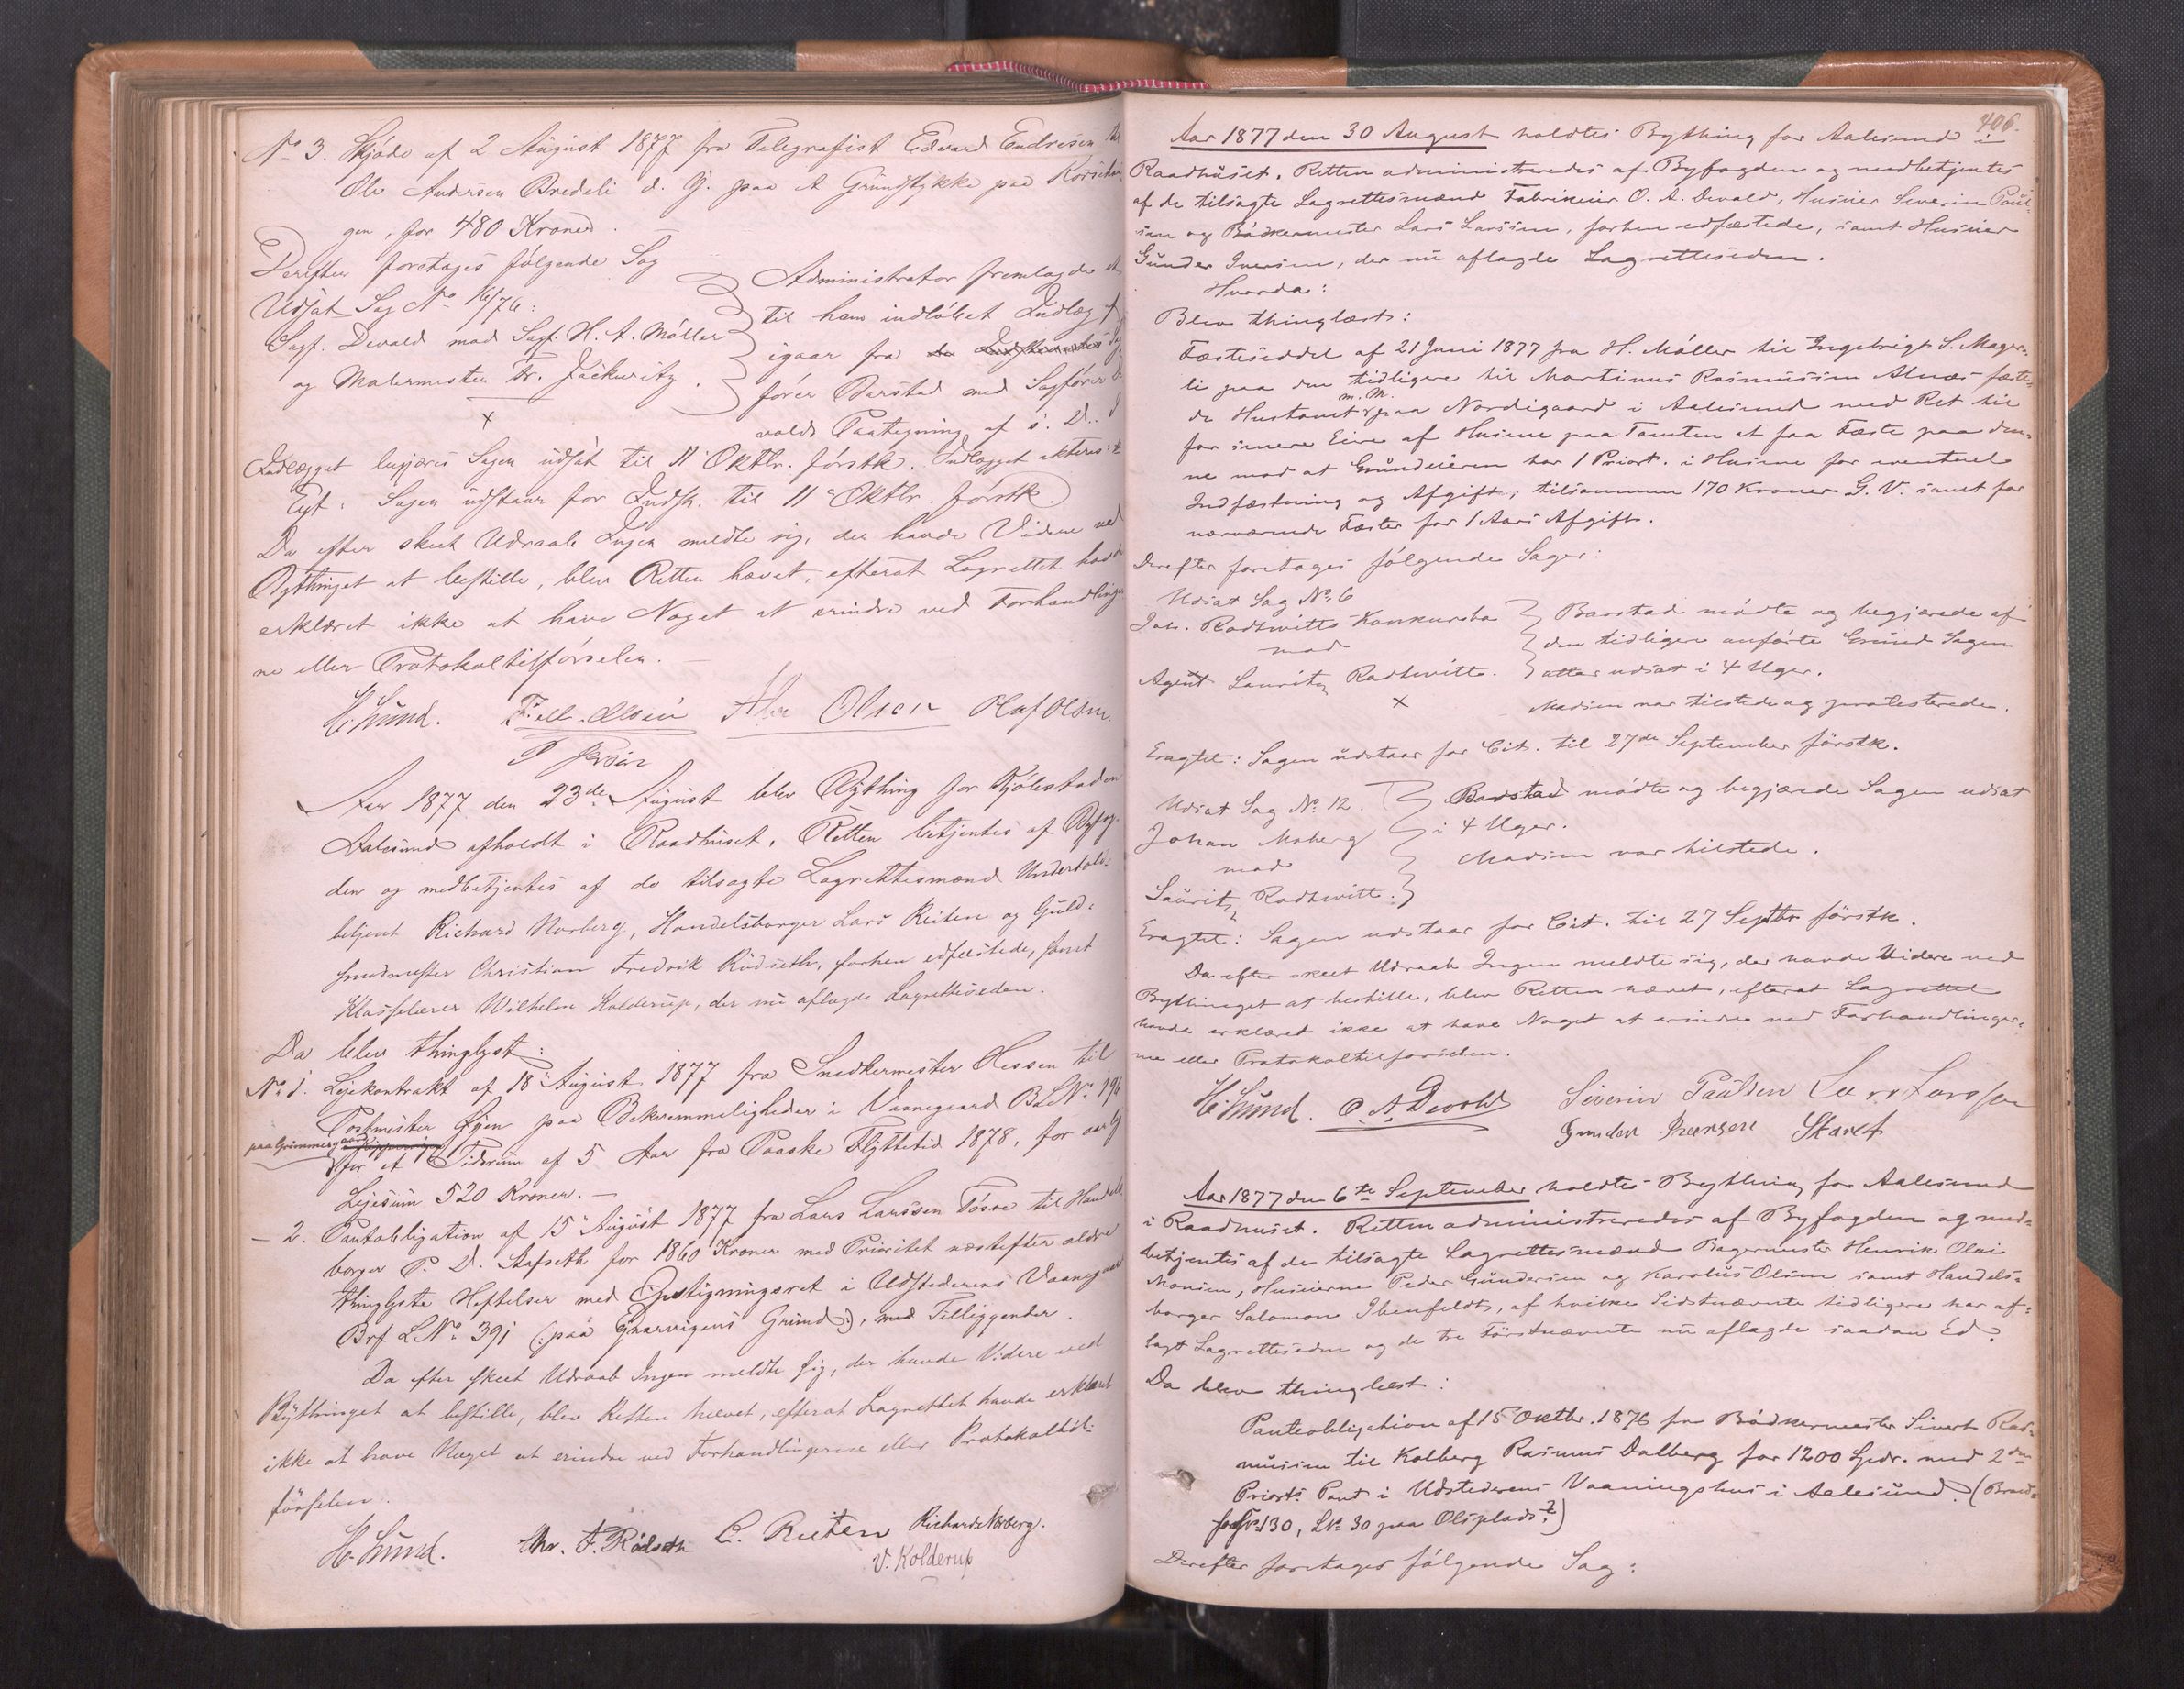 No 3. Skjøde af 2 August 1877 fra Telegrafist Edvard Endresen til
Ole Andersen Bredeli d. Y. paa et Grundstykke paa
gen, for 480 Kroner.
Derefter foretages følgende Sag
Udsat Sag No 16/76:
Sagf. Devold mod Sagf. H. A. Møller
og Malermester Fr. Jäckwitz.
Administrator fremlagde et
til ham indløbet Indlæg f
igaar fra
fører Barstad med Sagfører De
volds Paategning af s. D.. I
Indlægget begjæres Sagen udsat til 11 Oktbr. førstk. Indlægget akteres:
Egt: Sagen udstaar for Indst. til 11 Oktbr. førstk.
Da efter skeet Udraab Ingen meldte sig, der havde Videre ved
Bythinget at bestille, blev Retten hævet, efterat Lagrettet havde
erklæret ikke at have Noget at erindre ved Forhandlinger
ne eller Protokoltilførselen.
H. Lund. Olsen Olaf Olsen.
Aar 1877 den 23de August blev Bything for Kjøbstaden
Aalesund afholdt i Raadhuset. Retten betjentes af Byfog-
den og medbetjentes af de tilsagte Lagrettesmænd Undertold-
betjent Richard Norberg, Handelsborger Lars Reiten og Guld-
smedmester Christian Fredrik Rødseth, forhen edfæstede, samt
Klasselærer Wilhelm Kolderup, der nu aflagde Lagretteseden.
Da blev thinglyst:
No 1. Lejekontrakt af 18 August 1877 fra Snedkermester Hessen til
Postmester Øyen paa Bekvemmeligheder i Vaanegaard BLNo 196
paa Grimmergaard
for et Tidsrum af 5 Aar fra Paaske Flyttetid 1878, for aarlig
Lejesum 520 Kroner. —
— 2. Pantobligation af 15 August 1877 fra Lars Larssen Tøsse til Handels
borger P. D. Stafseth for 1860 Kroner med Prioritet næstefter ældre
thinglyste Heftelser med Opstigningsret i Udstederens Vaanegaard
Brf LNo 391 (: paa Grund:), med Tilliggender.
Da efter skeet Udraab Ingen meldte sig, der havde Videre ved
Bythinget at bestille, blev Retten hævet, efterat Lagrettet havde erklæret
ikke at have Noget at erindre ved Forhandlingerne eller Protokoltil-
førselen.
H. Lund. Chr. F. Rødseth L. Reiten Richard Norberg.
V. Kolderup
406.
Aar 1877 den 30 August holdtes Bything for Aalesund i
Raadhuset. Retten administreredes af Byfogden og medbetjentes
af de tilsagte Lagrettesmænd Fabrikeier O. A. Devold, Huseier Severin Poul-
sen og Bødkermester Lars Larssen, forhen edfæstede, samt Huseier
Gunder Iversen, der nu aflagde Lagretteseden.
Hvorda:
Blev thinglæst:
Fæsteseddel af 21 Juni 1877 fra H. Møller til Ingebrigt S. Mager-
li paa den tidligere til Martinus Rasmussen Alnæs fæste-
m. M.
de Hustomt paa Nordigaard i Aalesund med Ret til
for senere Eiere af Husene paa Tomten at faa Fæste paa den-
ne mod at Grundeieren har 1 Priort. i Husene for eventuel
Indfæstning og Afgift, tilsammen 170 Kroner G. V. samt for
nærværende Fæster for 1 Aars Afgift.
Derefter foretages følgende Sager:
Udsat Sag No. 6
Joh. Radtwitts Konkursbo
mod
Agent Lauritz Radtwitt.
Barstad mødte og begjærede af
den tidligere anførte Grund Sagen
atter udsat i 4 Uger.
Madsen var tilstede og protesterede.
Eragtet: Sagen udstaar for Cit. til 27de September førstk.
Udsat Sag No. 12.
Johan Moberg
mod
Lauritz Radtwitt.
Barstad mødte og begjærede Sagen udsat
i 4 Uger.
Madsen var tilstede.
Eragtet: Sagen udstaar for Cit. til 27 Septbr førstk.
Da efter skeet Udraab Ingen meldte sig, der havde Videre ved
Bythinget at bestille, blev Retten hævet, efterat Lagrettet
havde erklæret ikke at have Noget at erindre ved Forhandlinger-
ne eller Protokoltilførselen.
H. Lund. O. A. Devold Severin Paulsen Lars Larssen
Gunder Iversen
Aar 1877 den 6te September holdtes Bything for Aalesund
i Raadhuset. Retten administreredes af Byfogden og med-
betjentes af de tilsagte Lagrettesmænd Bagermester Henrik Olai
Monsen, Huseierne Peder Gundersen og Karolus Olsen samt Handels-
borger Salomon Ibenfeldt, af hvilke Sidstnævnte tidligere har af-
lagt Lagretteseden og de tre Førstnævnte nu aflagde saadan Ed.
Da blev thinglæst:
Panteobligation af 15 Oktbr. 1876 fra Bødkermester Sivert Ras-
mussen til Kolberg Rasmus Dalberg for 1200 Spdr. med 2den
Priorts Pant i Udstederens Vaaningshus i Aalesund. (Brand-
fors No 130, LNo 30 paa Olsplads?)
Derefter foretages følgende Sag: